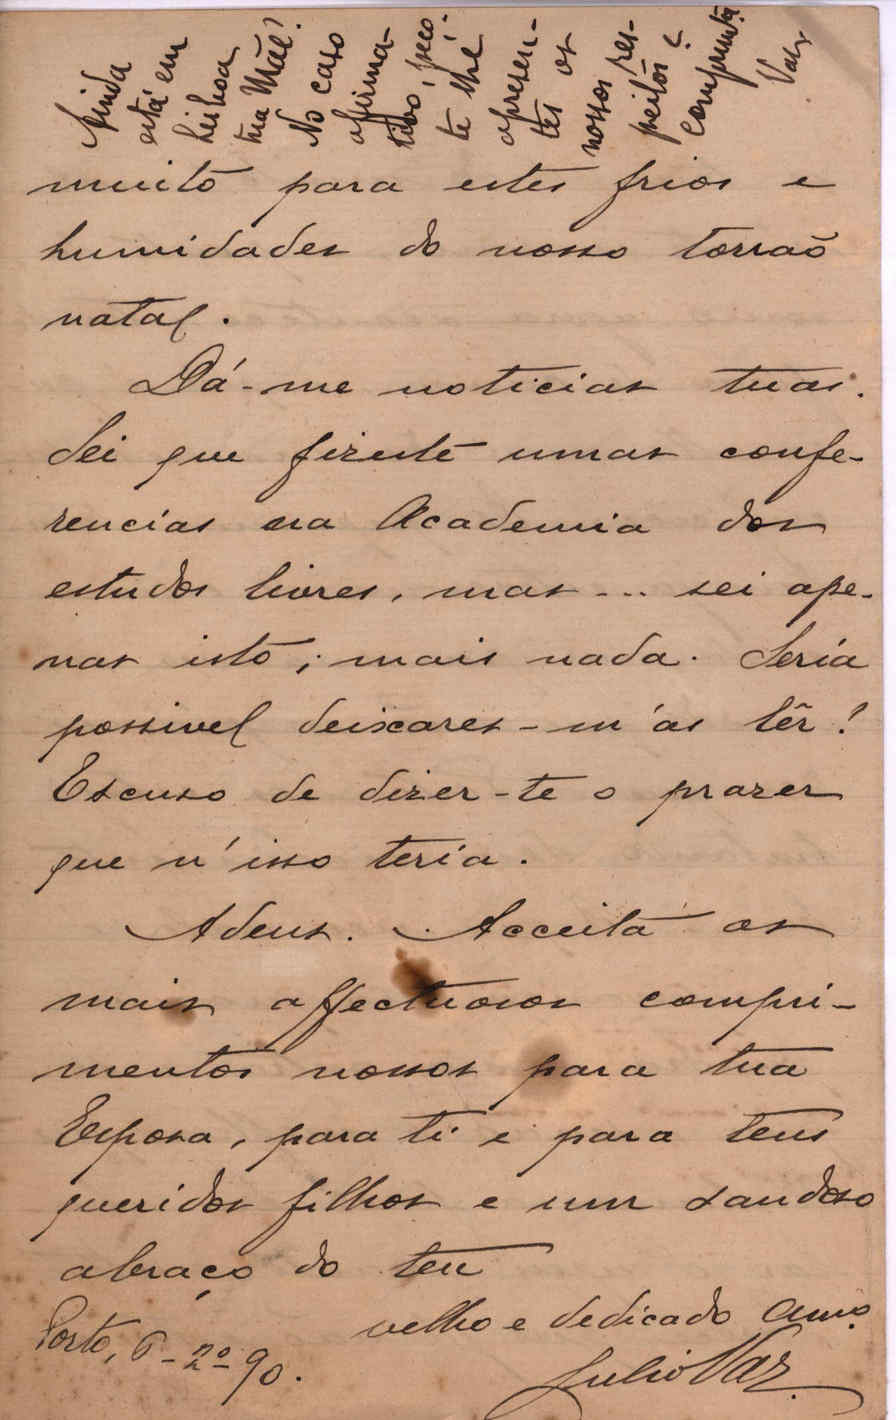 Ainda
está em
Lisboa
tua Mãe?
No caso
afirma-
tivo, peço-
te lhe
apresen-
tes os
nossos res-
peitos e
Vaz
muito para estes frios e
humidades do nosso torrão
natal.
Dá-me noticias tuas.
Sei que fizeste umas confe-
rencias na Academia dos
estudos livres, mas... sei ape-
nas isto; mais nada. Seria
possivel deixares-m'as lêr?
Escuso de dizer-te o prazer
que n'isso teria.
Adeus. Acceita os
mais affectuosos compri-
mentos nossos para tua
Esposa, para ti e para teus
queridos filhos e um saudoso
abraço do teu
velho e dedicado Amo.
Julio Vaz.
Porto, 6-2º-90.